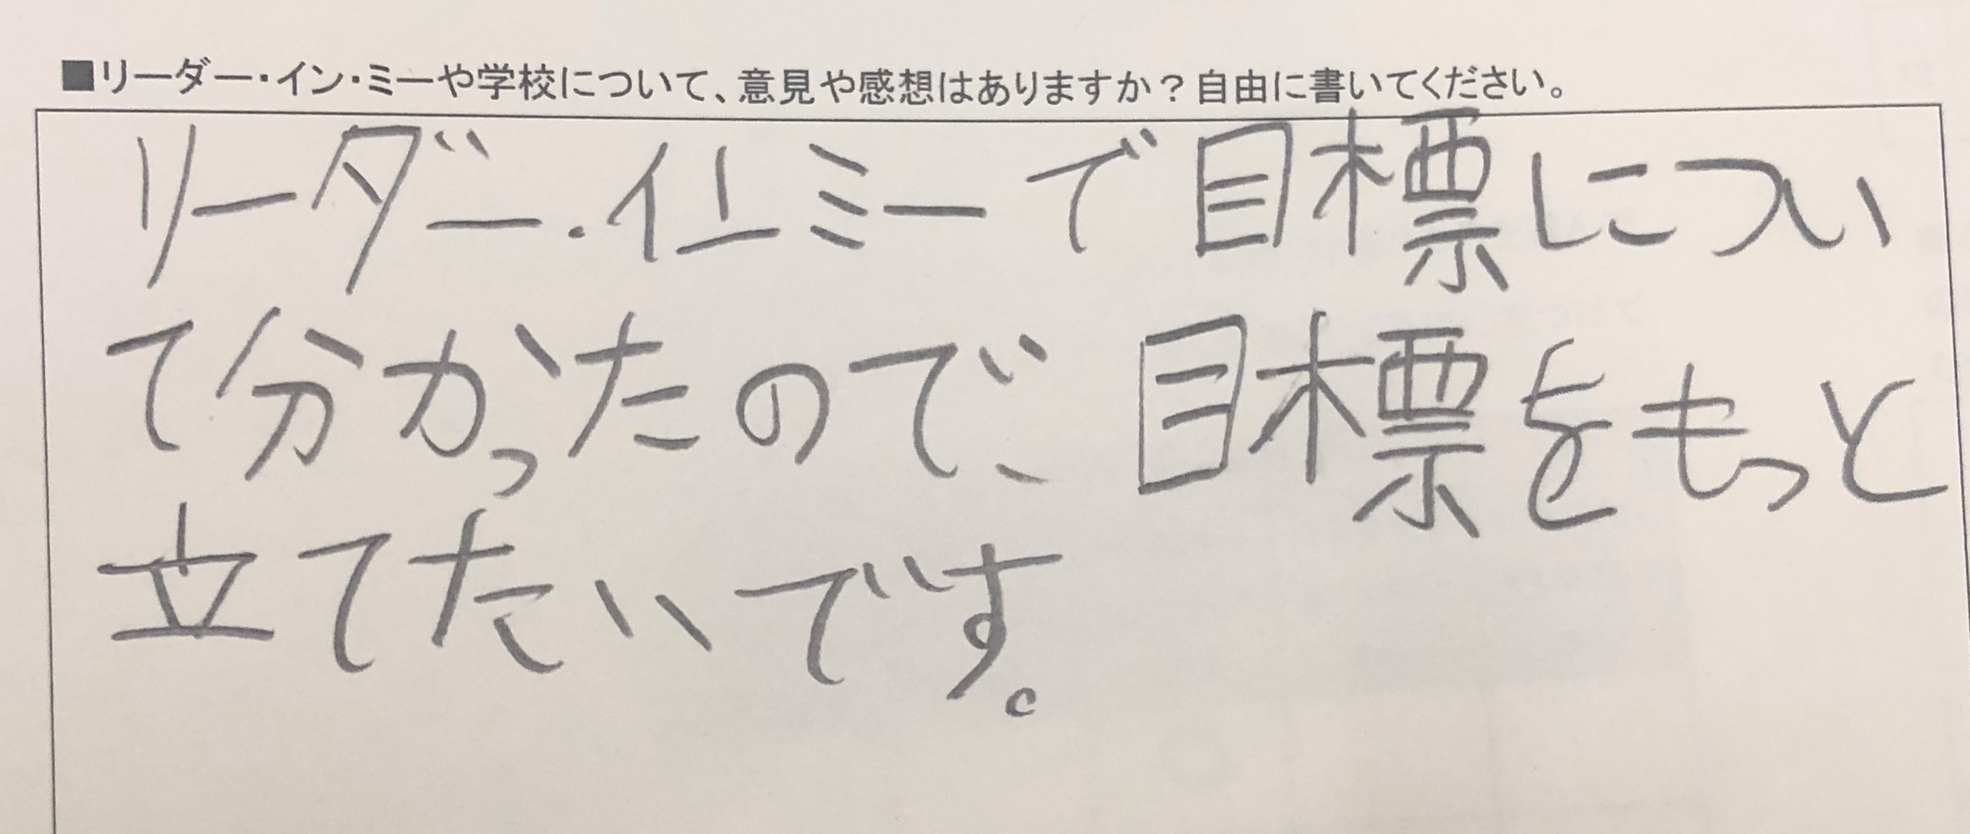 ■リーダー・イン・ミーや学校について、意見や感想はありますか？自由に書いてください。
リーダー・イン・ミーで目標につい
て分かったので、目標をもっと
立てたいです。